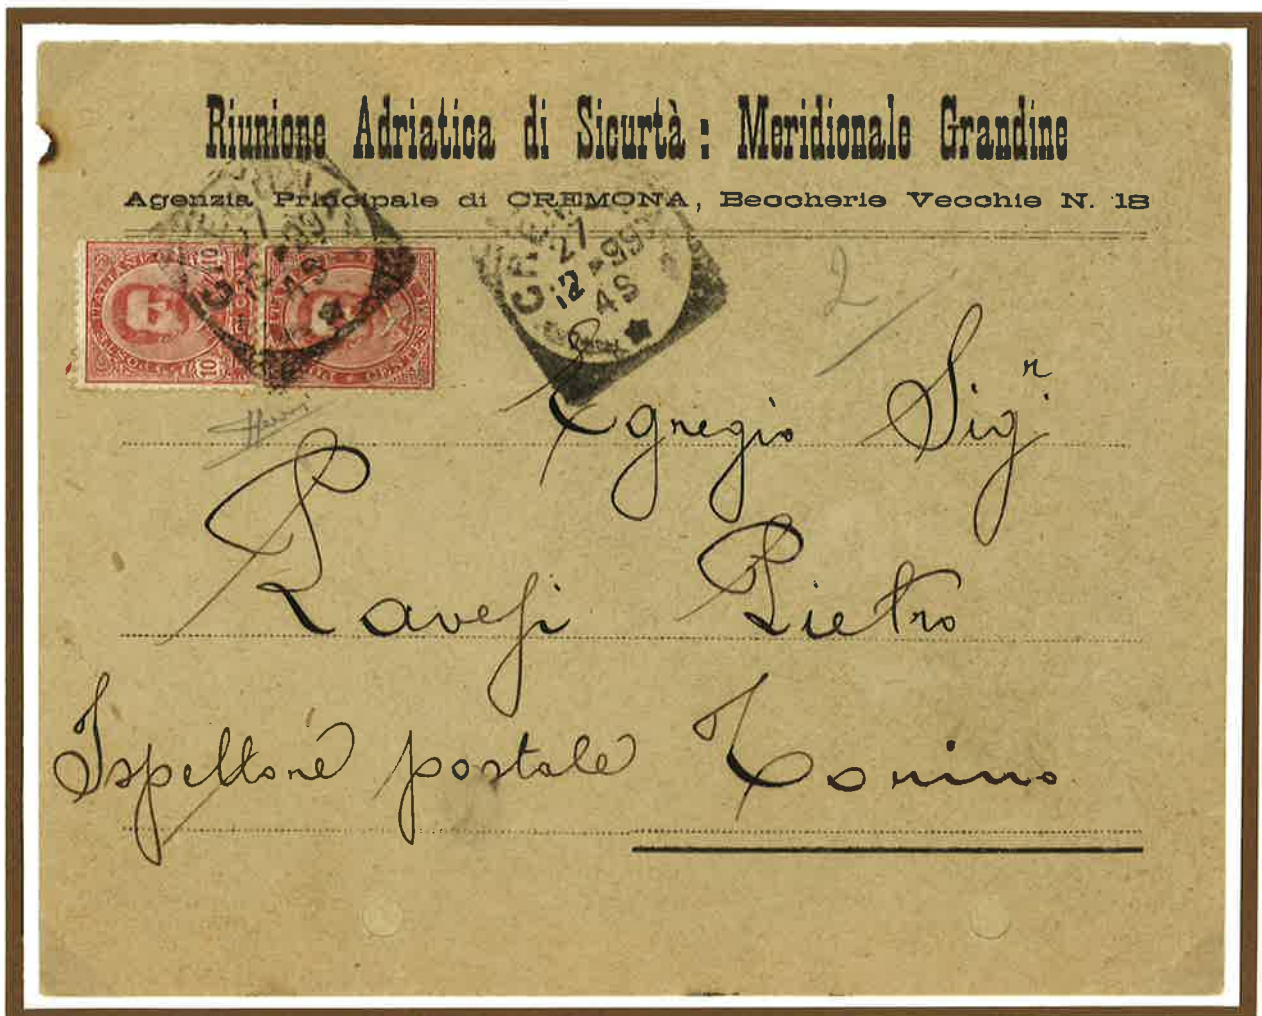 Riunione Adriatica di Sicurtà : Meridionale Grandine
Agenzia Principale di CREMONA, Beccherie Vecchie N. 18
CREMONA
27
12 99
4 S
CREMONA
27
12 99
4 S
10
10
2
Egregio Sigr.
Ravesi Pietro
Ispettore postale Torino